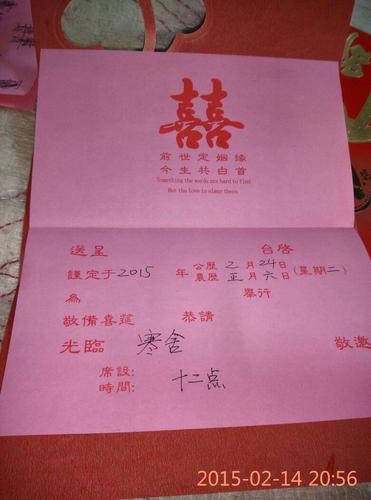 囍
前世定姻缘
今生共白首
Something the words are hard to find
But the love is alway there
送呈 台啓
謹定于2015年 公歷 2月24日 農歷 正月六日 (星期二)
為 舉行
敬備喜筵 恭請
光臨 寒舍 敬邀
席設:
時間: 十二点
2015-02-14 20:56